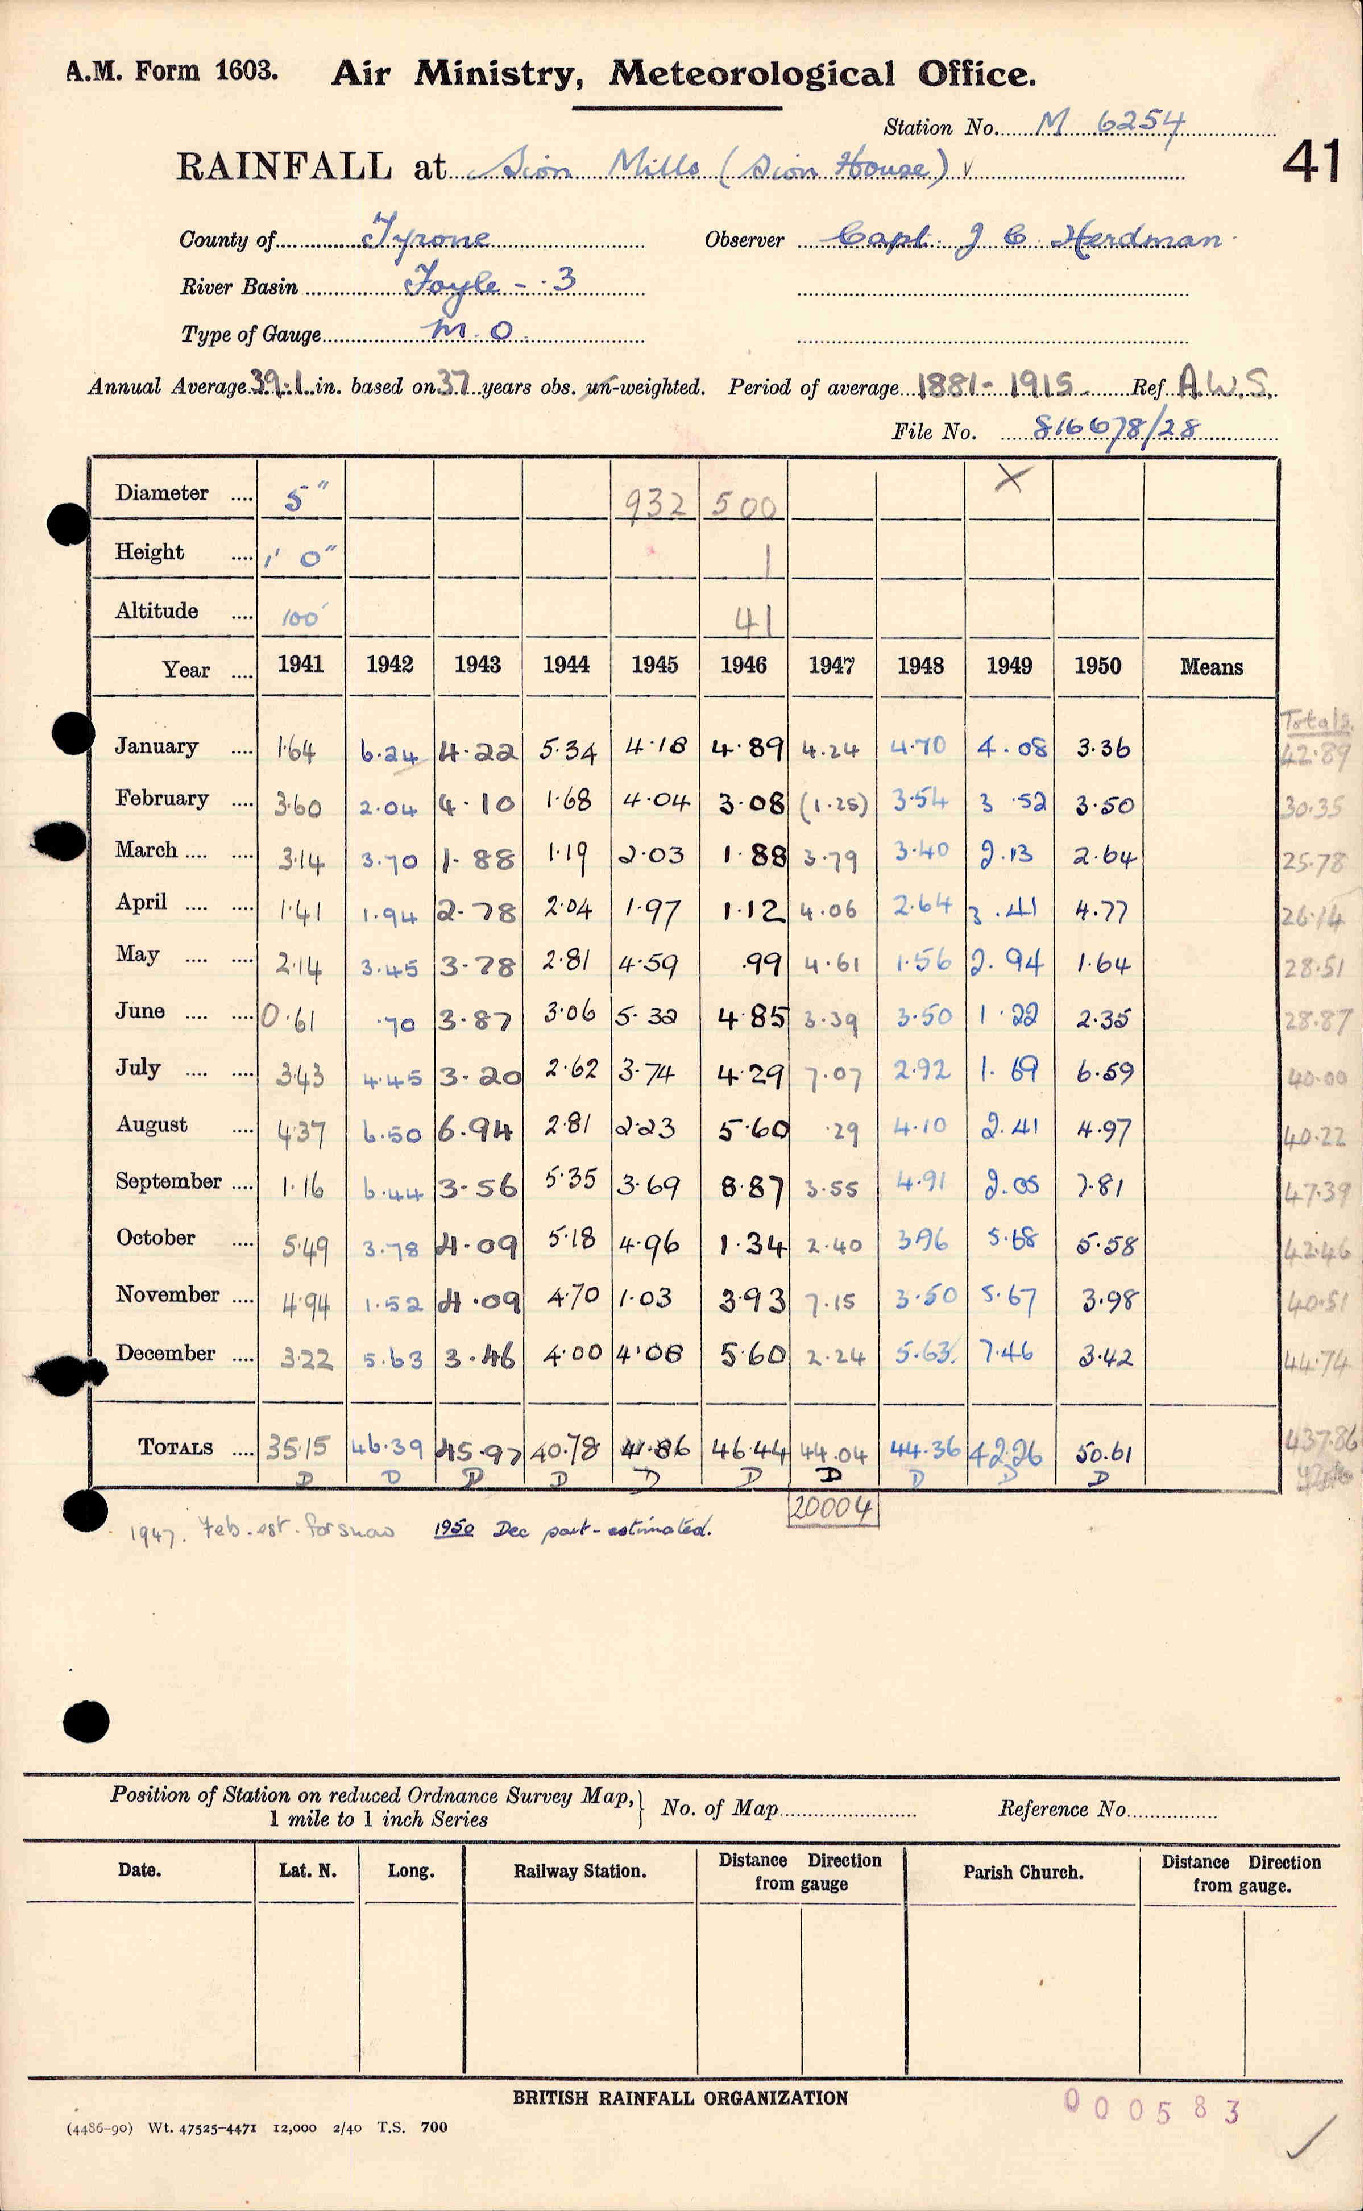 A.M. Form 1603. Air Ministry, Meteorological Office.
Station No. M 6254
41
RAINFALL at Sion Mills (Sion House) √
County of Tyrone Observer Capt. J C Herdman
River Basin Foyle - 3
Type of Gauge M.O.
Annual Average 39.1 in. based on 37 years obs. un-weighted. Period of average 1881-1915 Ref. A.W.S.
File No. 816678/28
Diameter .... 5" 932 500 X
Height .... 1' 0" 1
Altitude .... 100' 41
Year .... 1941 1942 1943 1944 1945 1946 1947 1948 1949 1950 Means
Totals.
January .... 1.64 6.24 4.22 5.34 4.18 4.89 4.24 4.70 4.08 3.36 42.89
February .... 3.60 2.04 4.10 1.68 4.04 3.08 (1.25) 3.54 3.52 3.50 30.35
March .... .... 3.14 3.70 1.88 1.19 2.03 1.88 3.79 3.40 2.13 2.64 25.78
April .... .... 1.41 1.94 2.78 2.04 1.97 1.12 4.06 2.64 3.41 4.77 26.14
May .... .... 2.14 3.45 3.78 2.81 4.59 .99 4.61 1.56 2.94 1.64 28.51
June .... .... 0.61 .70 3.87 3.06 5.32 4.85 3.39 3.50 1.22 2.35 28.87
July .... .... 3.43 4.45 3.20 2.62 3.74 4.29 7.07 2.92 1.69 6.59 40.00
August .... 4.37 6.50 6.94 2.81 2.23 5.60 .29 4.10 2.41 4.97 40.22
September .... 1.16 6.44 3.56 5.35 3.69 8.87 3.55 4.91 2.05 7.81 47.39
October .... 5.49 3.78 4.09 5.18 4.96 1.34 2.40 3.96 5.68 5.58 42.46
November .... 4.94 1.52 4.09 4.70 1.03 3.93 7.15 3.50 5.67 3.98 40.51
December .... 3.22 5.63 3.46 4.00 4.08 5.60 2.24 5.63 7.46 3.42 44.74
TOTALS .... 35.15 46.39 45.97 40.78 41.86 46.44 44.04 44.36 42.26 50.61 437.86
D D D D D D D D D D
20004
1947. Feb. est. for snow 1950 Dec part-estimated.
Position of Station on reduced Ordnance Survey Map, } No. of Map Reference No.
1 mile to 1 inch Series
Date. Lat. N. Long. Railway Station. Distance Direction from gauge Parish Church. Distance Direction from gauge.
BRITISH RAINFALL ORGANIZATION
000583
(4486-90) Wt. 47525-4471 12,000 2/40 T.S. 700